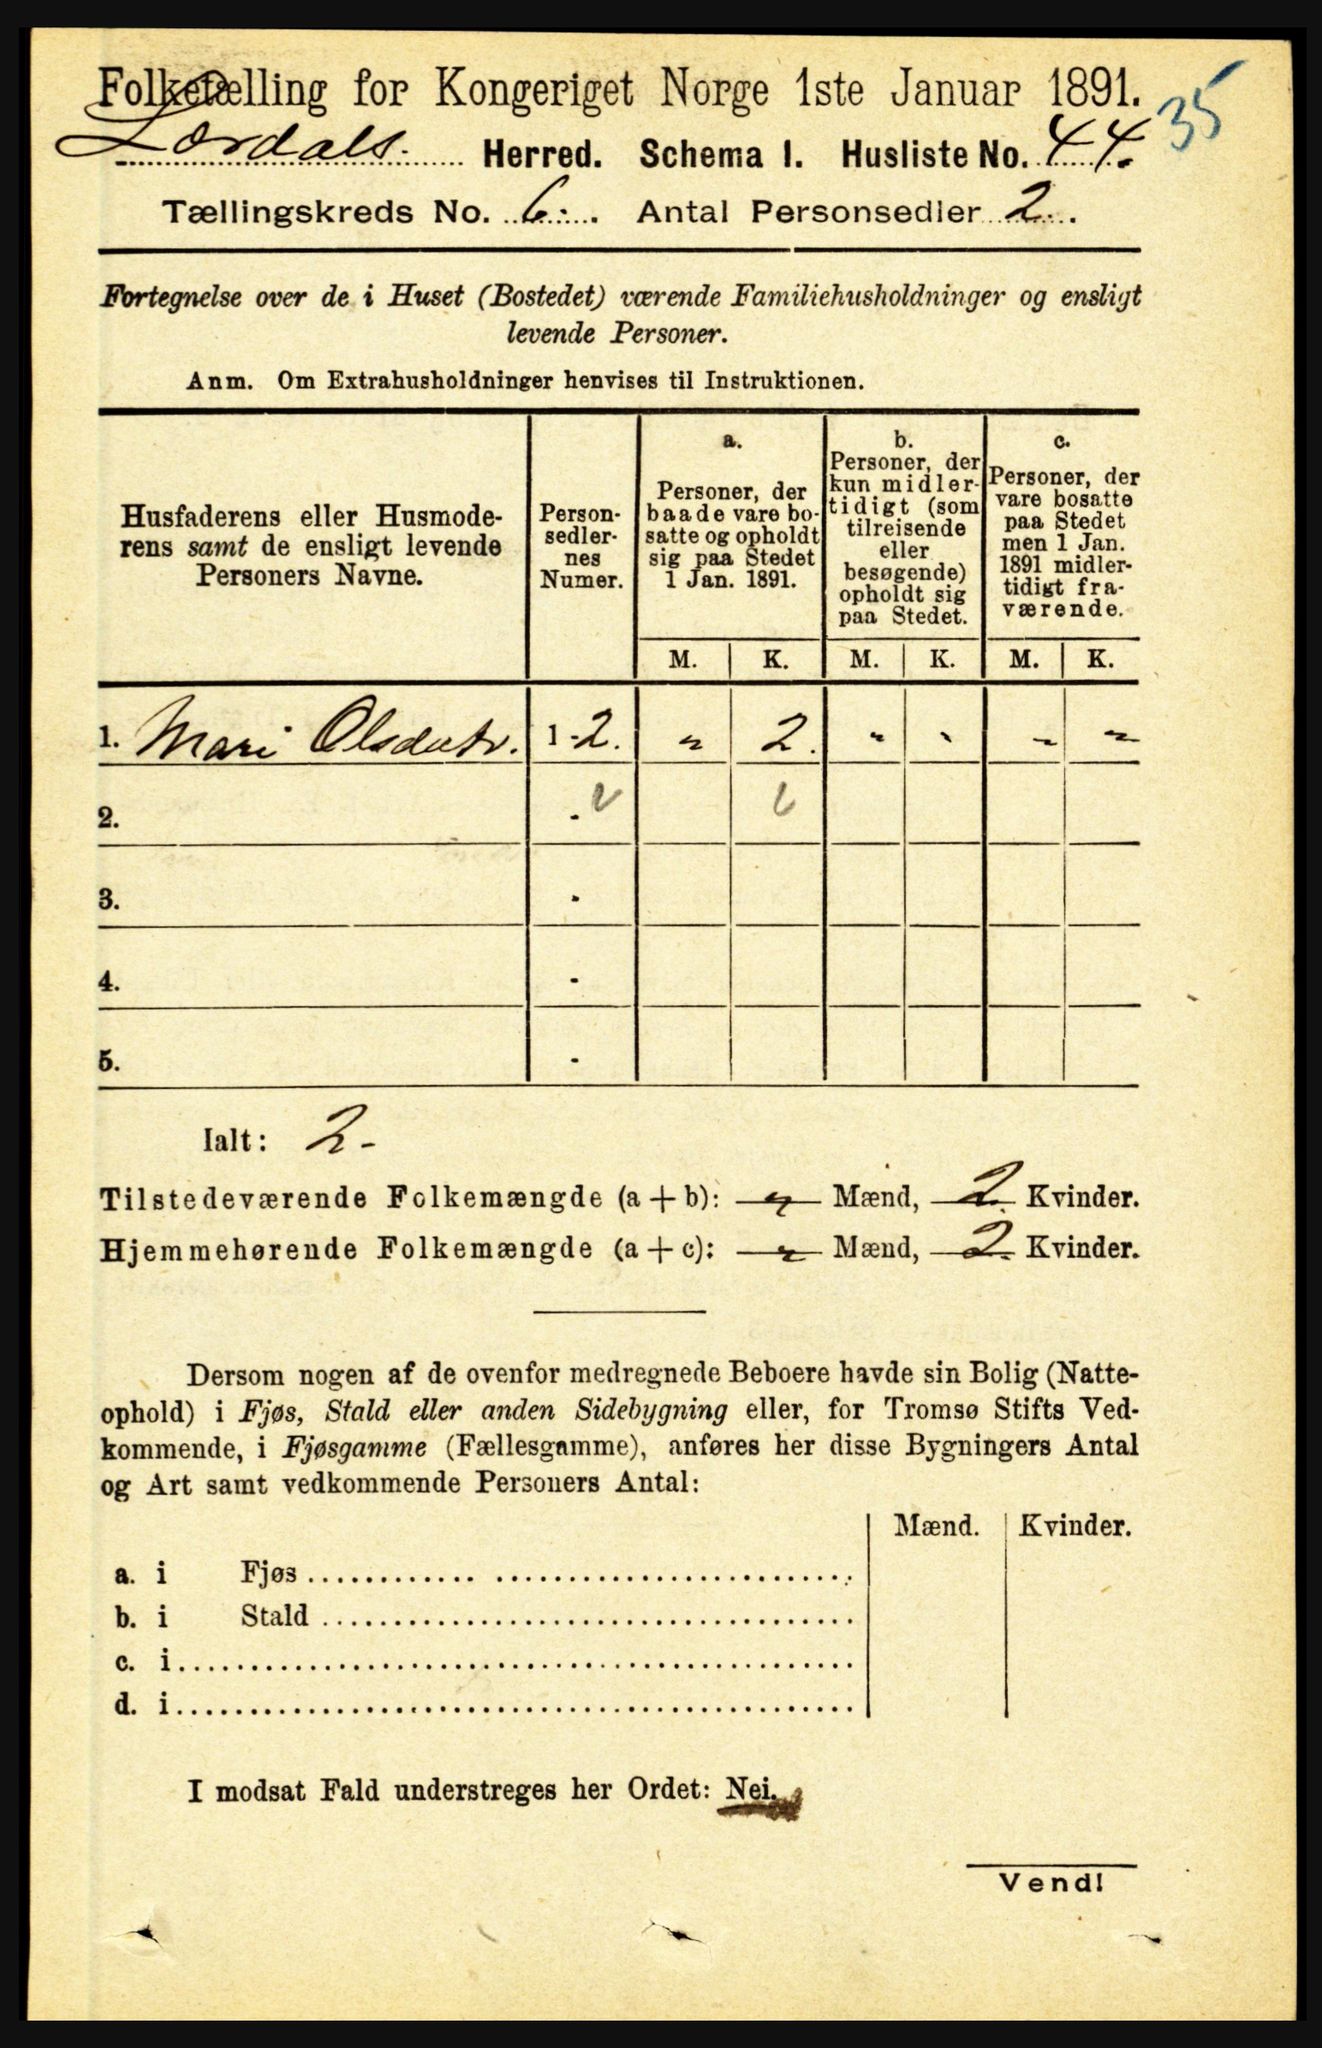 Folketælling for Kongeriget Norge 1ste Januar 1891.
35
Lærdals Herred. Schema I. Husliste No. 44.
Tællingskreds No. 6. Antal Personsedler 2.
Fortegnelse over de i Huset (Bostedet) værende Familiehusholdninger og ensligt
levende Personer.
Anm. Om Extrahusholdninger henvises til Instruktionen.
Husfaderens eller Husmode-
rens samt de ensligt levende
Personers Navne.
Person-
sedler-
nes
Numer.
a.
Personer, der
baade vare bo-
satte og opholdt
sig paa Stedet
1 Jan. 1891.
b.
Personer, der
kun midler-
tidigt (som
tilreisende
eller
besøgende)
opholdt sig
paa Stedet.
c.
Personer, der
vare bosatte
paa Stedet
men 1 Jan.
1891 midler-
tidigt fra-
værende.
M. K. M. K. M. K.
1. Mari Olsdatr. 1-2. " 2. " " " "
2. -
3. -
4. -
5. -
Ialt: 2-
Tilstedeværende Folkemængde (a + b): " Mænd, 2. Kvinder.
Hjemmehørende Folkemængde (a + c): " Mænd, 2. Kvinder.
Dersom nogen af de ovenfor medregnede Beboere havde sin Bolig (Natte-
ophold) i Fjøs, Stald eller anden Sidebygning eller, for Tromsø Stifts Ved-
kommende, i Fjøsgamme (Fællesgamme), anføres her disse Bygningers Antal
og Art samt vedkommende Personers Antal:
Mænd. Kvinder.
a. i Fjøs
b. i Stald
c. i
d. i
I modsat Fald understreges her Ordet: Nei.
Vend!